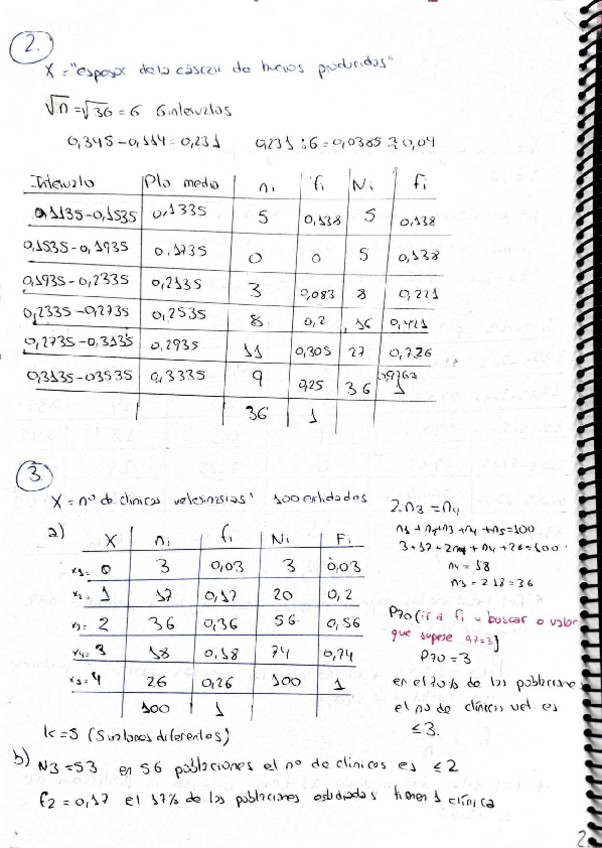 2.
X = "espesor de la cáscara de huevos producidos"
√n = √36 = 6 6 intervalos
0,345 - 0,114 = 0,231 0,231 : 6 = 0,0385 ≈ 0,04
Intervalo Pto medio ni fi Ni Fi
0,1135-0,1535 0,1335 5 0,138 5 0,138
0,1535-0,1935 0,1735 0 0 5 0,138
0,1935-0,2335 0,2135 3 0,083 8 0,221
0,2335-0,2735 0,2535 8 0,2 16 0,421
0,2735-0,3135 0,2935 11 0,305 27 0,726
0,3135-03535 0,3335 9 0,25 36 1
36 1
3.
X = nº de clínicas veterinarias' 100 entidades
a)
X ni fi Ni Fi
x1= 0 3 0,03 3 0,03
x2= 1 17 0,17 20 0,2
x3= 2 36 0,36 56 0,56
x4= 3 18 0,18 74 0,74
x5= 4 26 0,26 100 1
100 1
k = 5 (5 valores diferentes)
2.n3 = n4
n1 + n2+n3 + n4 + n5 = 100
3 + 17 + 2n4 + n4 + 26 = 100
n4 = 18
n3 = 2.18 = 36
P70 (ir a Fi e buscar o valor
que supere a 7=3)
P70 = 3
en el 70% de las poblaciones
el no de clínicas vet. es
≤ 3.
b) N3 = 53 en 56 poblaciones el nº de clínicas es ≤ 2
f2 = 0,17 el 17% de las poblaciones estudiadas tienen 1 clínica
2